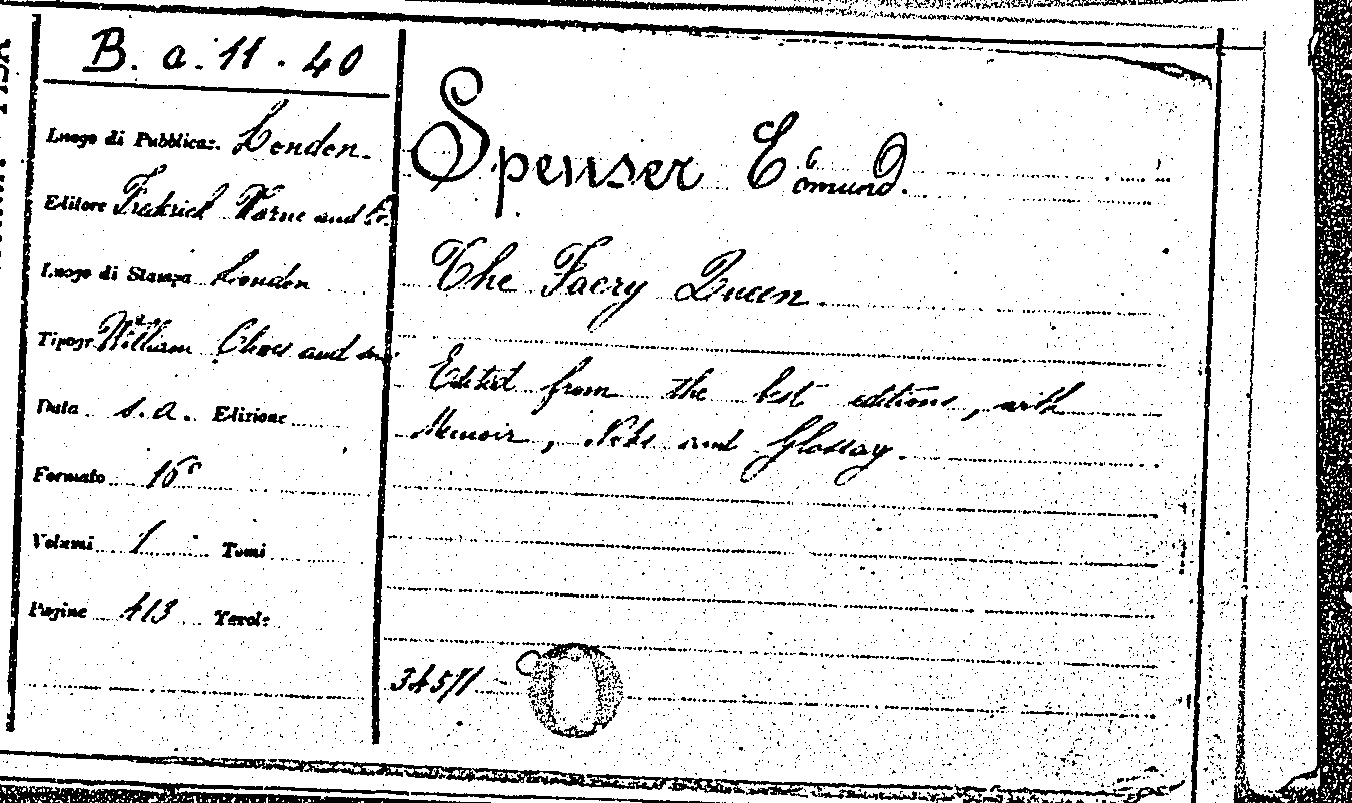 B. a. 11. 40
Luogo di Pubblicaz. London.
Editore Frederick Warne and Co.
Luogo di Stampa London
Tipogr. William Clows and sons
Data s.a. Edizione
Formato 16°
Volumi 1 Tomi
Pagine 413 Tavole
Spenser Edmund.
The Faery Queen.
Edited from the best editions, with
Memoir, Notes and Glossay.
34571